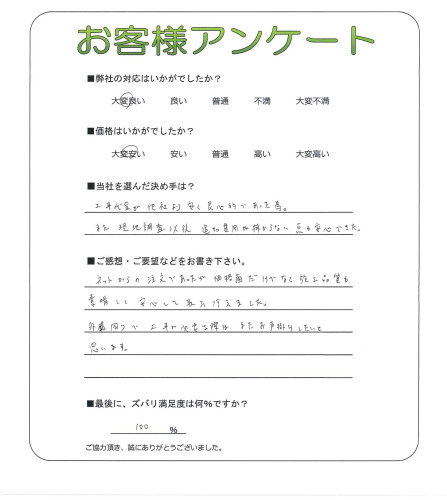 お客様アンケート
■弊社の対応はいかがでしたか？
大変良い 良い 普通 不満 大変不満
■価格はいかがでしたか？
大変安い 安い 普通 高い 大変高い
■当社を選んだ決め手は？
工事代金が他社より安く良心的であった為。
また現地調査以後追加費用が掛からない点も安心できた。
■ご感想・ご要望などをお書き下さい。
ネットからの注文であったが価格面だけでなく施工品質も
素晴しく安心して取引行えました。
外構周りで工事が必要な際はまたお声掛けしたいと
思います。
■最後に、ズバリ満足度は何％ですか？
100 ％
ご協力頂き、誠にありがとうございました。